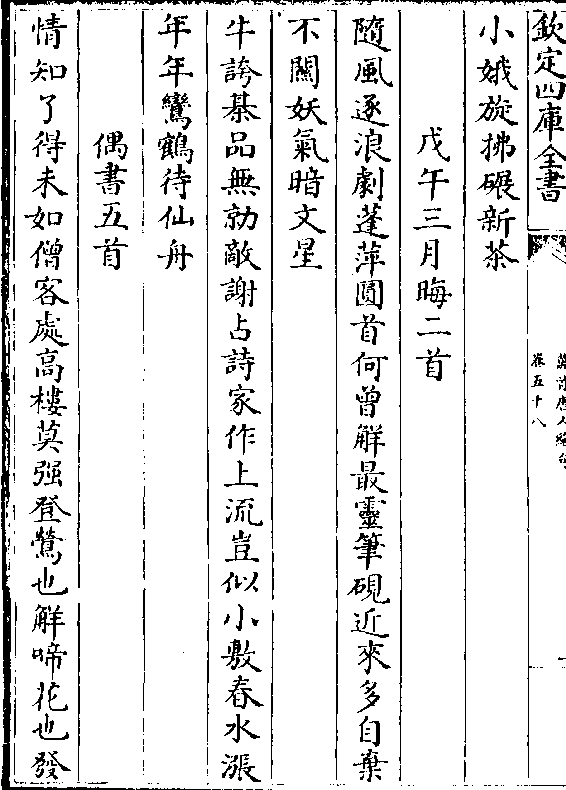 欽定四庫全書
萬首唐人絕句
卷五十八
小娥旋拂碾新茶
戊午三月晦二首
隨風逐浪劇蓬萍圓首何曾解最靈筆硯近來多自棄
不關妖氣暗文星
牛誇棊品無勍敵謝占詩家作上流豈似小敷春水漲
年年鸞鶴待仙舟
偶書五首
情知了得未如僧客處高樓莫强登鶯也解啼花也發